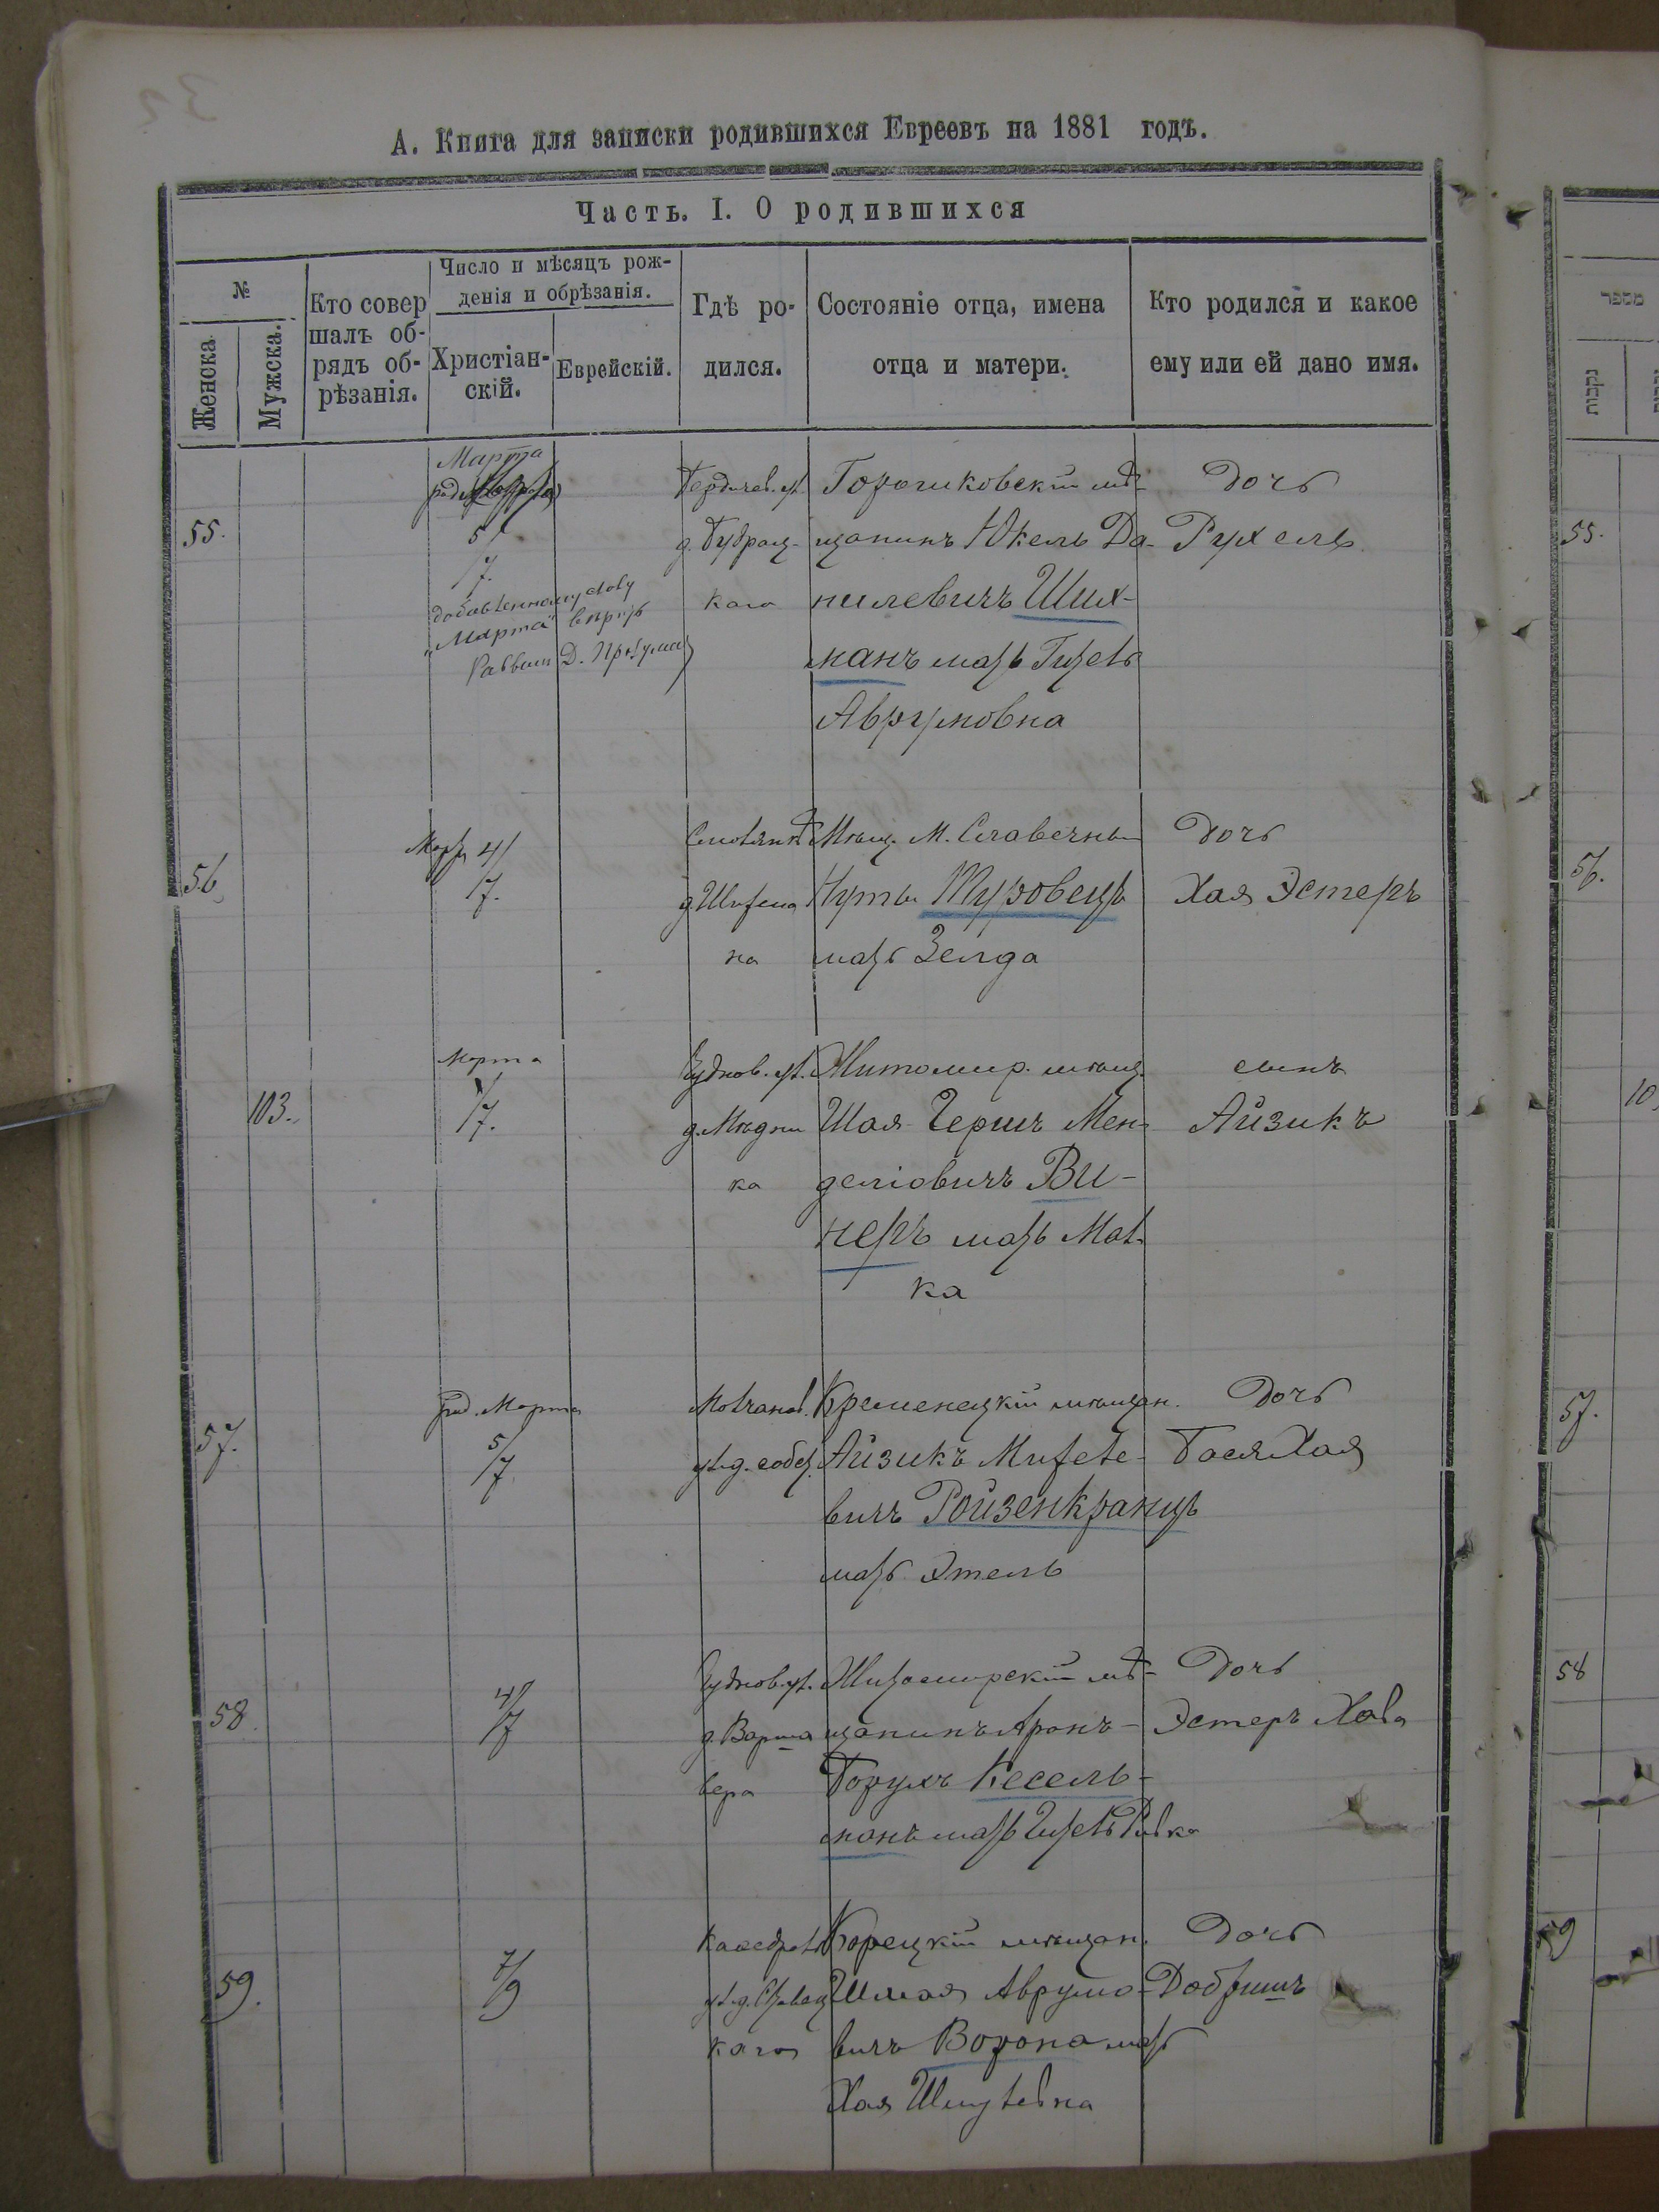 А. Книга для записки родившихся Евреевъ на 1881 годъ.
Часть. I. О родившихся
№
Женска.
Мужска.
Кто совер
шалъ об-
рядъ об-
рѣзанія.
Число и мѣсяцъ рож-
денія и обрѣзанія.
Христіан-
скій.
Еврейскій.
Гдѣ ро-
дился.
Состояніе отца, имена
отца и матери.
Кто родился и какое
ему или ей дано имя.
55.
Марта
5/7.
Марта
Раввин Д.
Бердичев. ул.
каго
мѣ-
щанинъ Юкель Да-
нилевичъ Ших-
манъ мать Гитель
Аврумовна
Дочь
Рухель
56.
Март 4/7.
на
Мѣщ. М. Славечны
Нута Туровецъ
мать Зелда
Дочь
Хая Эстеръ
103.
Марта
1/7.
Чуднов. ул.
ка
Житомир. мѣщ.
Шая-Гершъ Мен-
деліовичъ Ви-
неръ мать Мал-
ка
сынъ
Айзикъ
57.
род. Марта
5/7
ул. д. собст.
Кременецкій мѣщан.
Айзикъ
вичъ Ройзенкранцъ
мать Этель
Дочь
Бася Хая
58.
4/7
Чуднов. ул.
д. Варша
вера
Житомирскій мѣ-
щанинъ Аронъ-
Борухъ Кесель-
манъ мать Гитель Ривка
Дочь
Эстеръ Хава
59.
7/9
каго
Корецкій мѣщан.
Шмая Аврумо-
вичъ Ворона мать
Хая Шмулевна
Дочь
Добришъ
מספר
נקבות
55.
56.
10
57.
58
59